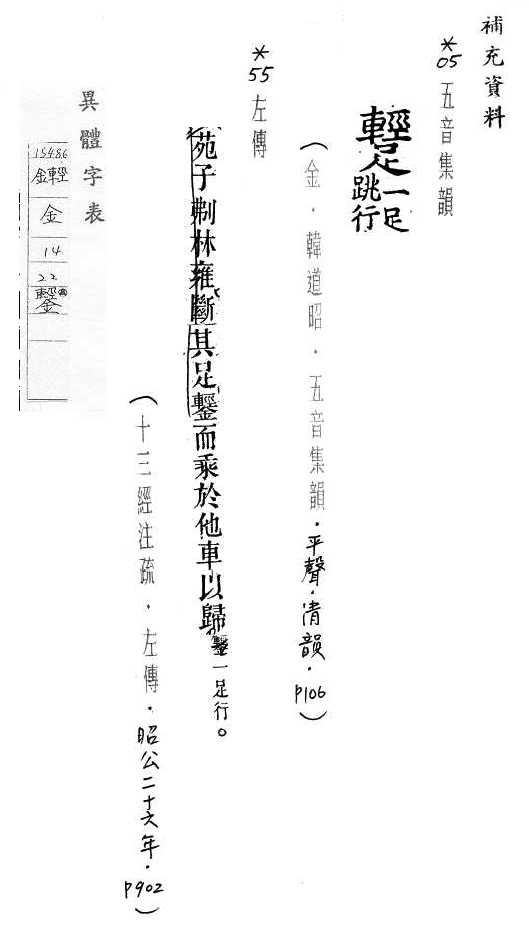 補充資料
*05 五音集韻
𨇘 一足跳行
(金．韓道昭．五音集韻．平聲．清韻．P106)
*55 左傳
苑子㓨林雍斷其足鑋而乘於他車以歸 鑋一足行。
(十三經注疏．左傳．昭公二十六年．P902)
異體字表
15486
金
14
22
鑋